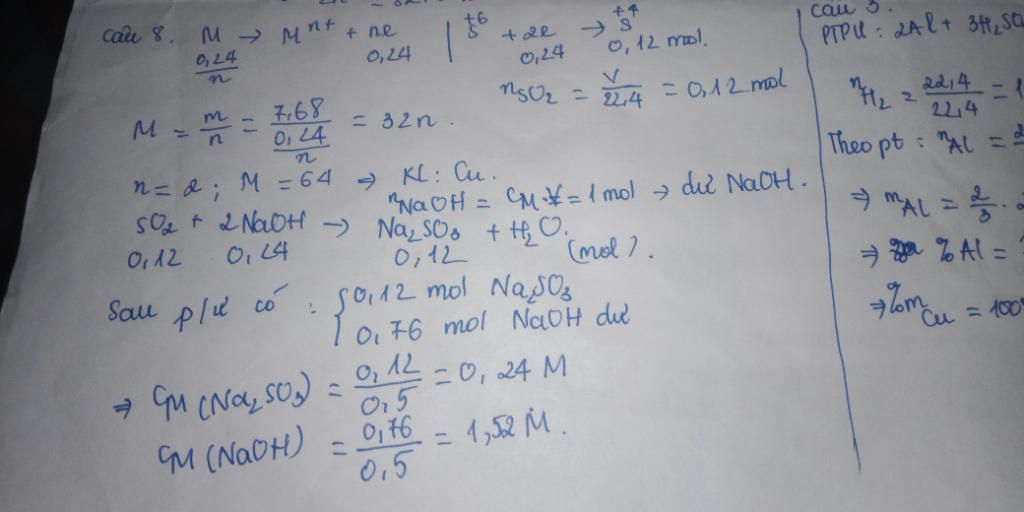 Câu 8. M → Mⁿ⁺ + ne | S⁺⁶ + 2e → S⁺⁴
0,24/n 0,24 0,24 0,12 mol.
nSO₂ = V/22,4 = 0,12 mol
M = m/n = 7,68/(0,24/n) = 32n.
n = 2 ; M = 64 ⇒ KL : Cu.
nNaOH = CM.V = 1 mol → dư NaOH.
SO₂ + 2NaOH → Na₂SO₃ + H₂O.
0,12 0,24 0,12 (mol).
Sau p/ư có : { 0,12 mol Na₂SO₃
0,76 mol NaOH dư
⇒ CM(Na₂SO₃) = 0,12/0,5 = 0,24 M
CM(NaOH) = 0,76/0,5 = 1,52 M.
Câu 3.
PTPƯ : 2Al + 3H₂SO
nH₂ = 22,4/22,4 = 1
Theo pt : nAl = 2
⇒ mAl = 2/3 . 2
⇒ %Al =
⇒ %mCu = 100%